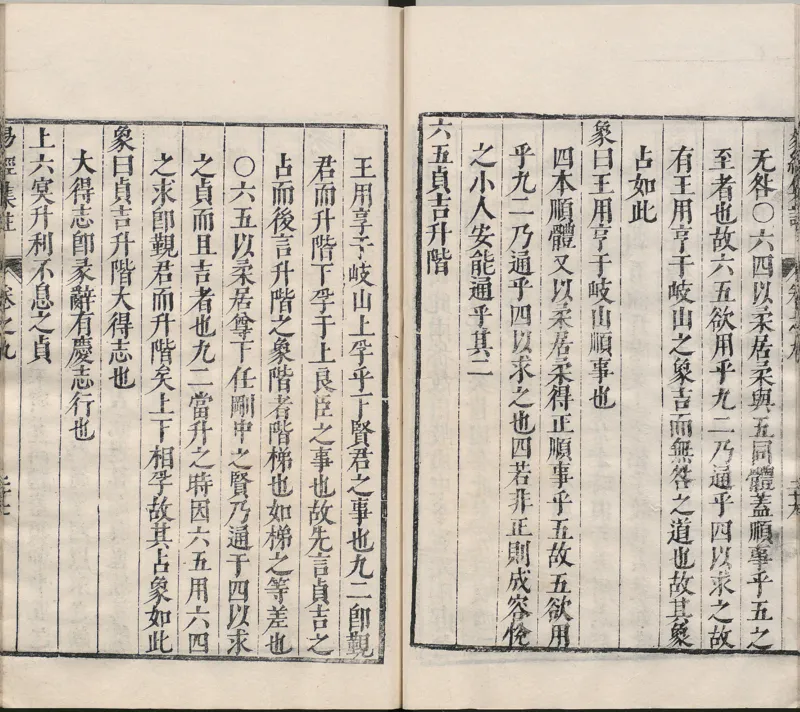 无咎○六四以柔居柔與五同體蓋順事乎五之
至者也故六五欲用乎九二乃通乎四以求之故
有王用亨于岐山之象吉而無咎之道也故其象
占如此
象曰王用亨于岐山順事也
四本順體又以柔居柔得正順事乎五故五欲用
乎九二乃通乎四以求之也四若非正則成容悅
之小人安能通乎其二
六五貞吉升階
王用亨于岐山上孚乎下賢君之事也九二即觀
君而升階下孚于上良臣之事也故先言貞吉之
占而後言升階之象階者階梯也如梯之等差也
○六五以柔居尊下任剛中之賢乃通于四以求
之貞而且吉者也九二當升之時因六五用六四
之求即觀君而升階矣上下相孚故其占象如此
象曰貞吉升階大得志也
大得志即彖辭有慶志行也
上六冥升利不息之貞
易經集註 卷之九